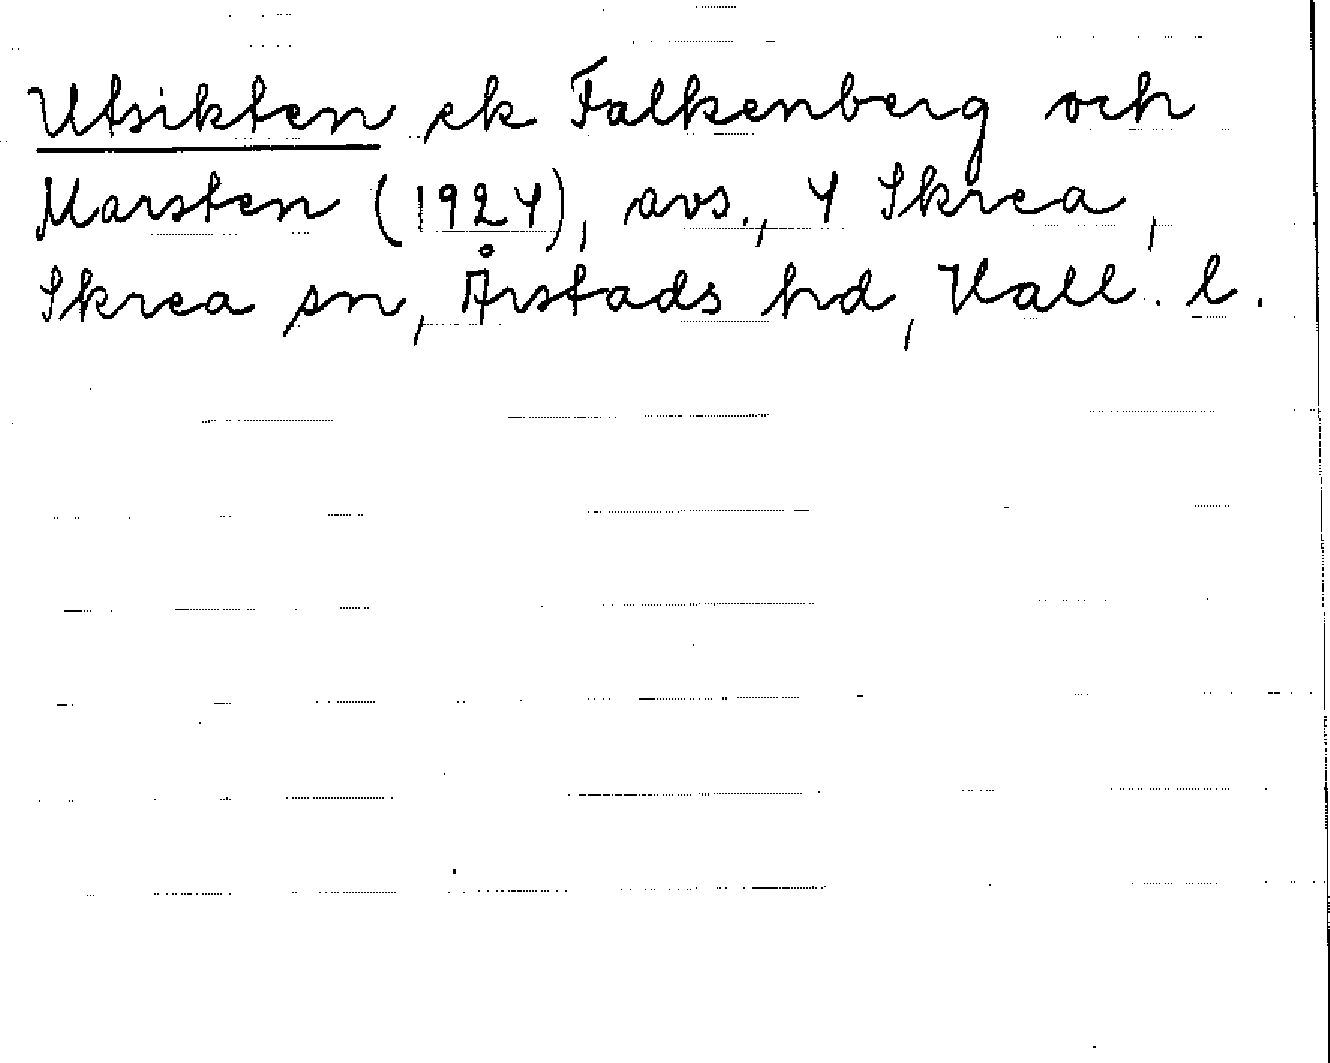 Utsikten ek Falkenberg och
Marsten (1924), avs., 4 Skrea,
Skrea sn, Årstads hd, Hall. l.